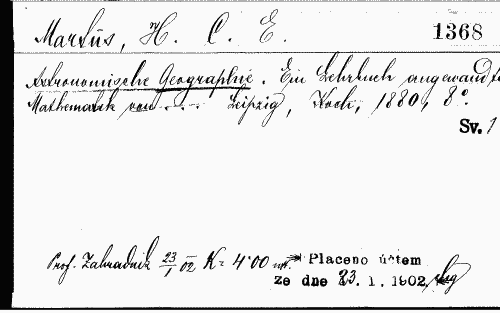 Martus, H. C. E.
1368
Astronomische Geographie. Ein Lehrbuch angewandte
Mathematik von .... Leipzig, Koch, 1880, 8°.
Sv. 1
Prof. Zahradník 23/1 02 K= 4·00
Placeno účtem
ze dne 23. 1. 1902